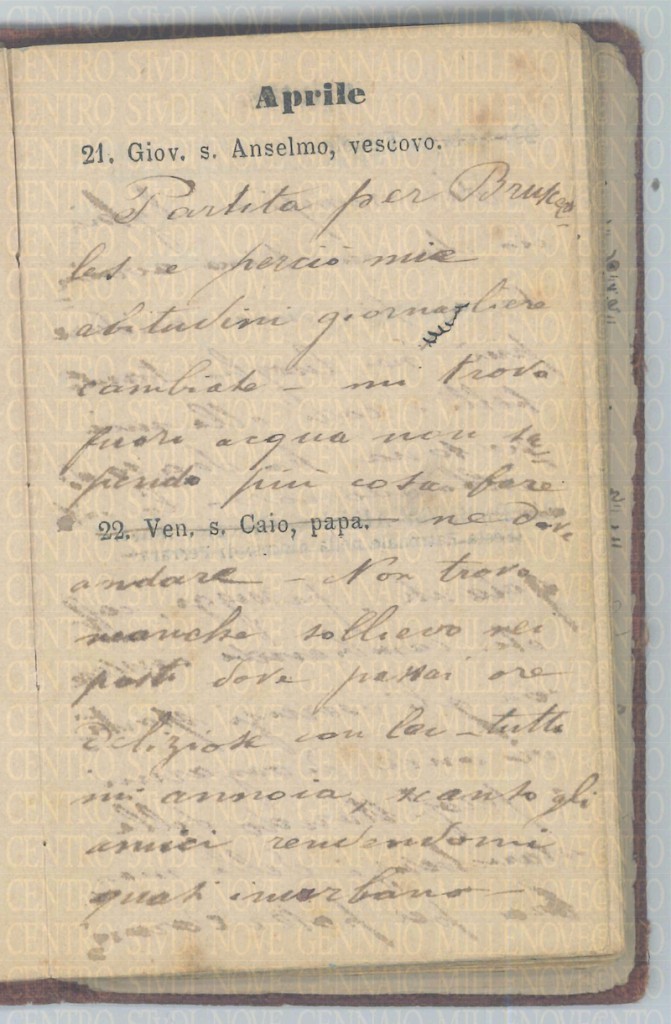 Aprile
21. Giov. s. Anselmo, vescovo.
Partita per Bruxel-
les e perciò mie
abitudini giornagliere
cambiate - mi trovo
fuori acqua non sa-
pendo più cosa fare
22. Ven. s. Caio, papa. - ne dove
andare - Non trovo
manche sollievo nei
posti dove passai ore
deliziose con lei - tutto
mi annoia, scanso gli
amici rendendomi
quasi inurbano -
CENTRO STUDI NOVE GENNAIO MILLENOVECENTO